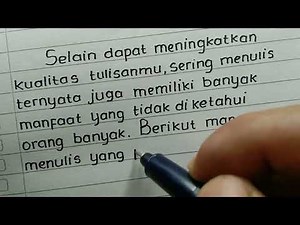 Selain dapat meningkatkan
kualitas tulisanmu, sering menulis
ternyata juga memiliki banyak
manfaat yang tidak diketahui
orang banyak. Berikut
menulis yang